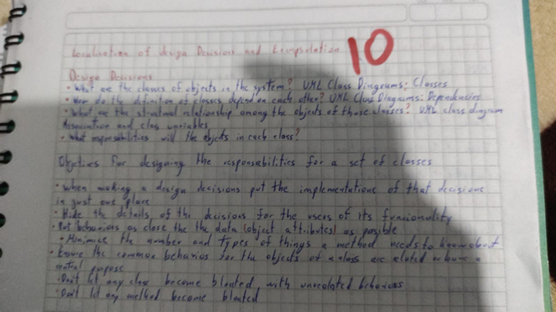 Localization of design Decisions and Encapsulation
10
Design Decisions
• What are the classes of objects in the system? UML Class Diagrams; Classes
• How do the definition of classes depend on each other? UML Class Diagrams: Dependencies
• What are the structural relationship among the objects of those classes? UML class diagram
Association and class variables
• What responsibilities will the objects in each class?
Objetives for designing the responsabilities for a set of classes
• when making a design decisions put the implementations of that decisions
in just one place
• Hide the details of the decisions for the users of its funcionality
• Put behaviors as close the the data (object attributes) as possible
• Minimize the number and types of things a method needs to know about
• Ensure the common behavior for the objects of a class are related to have a
central purpose
• Don't let any class become bloated, with unrelated behaviors
• Don't let any method become bloated